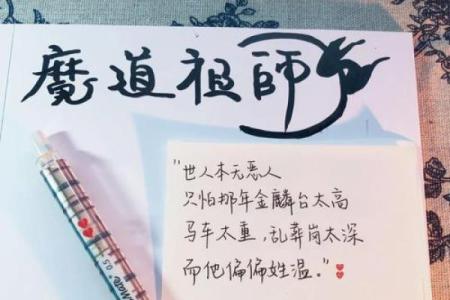 魔道祖師
"世人本无恶人
只怕那年金麟台太高
马车太重，乱葬岗太深
而他偏偏姓温."
0.5